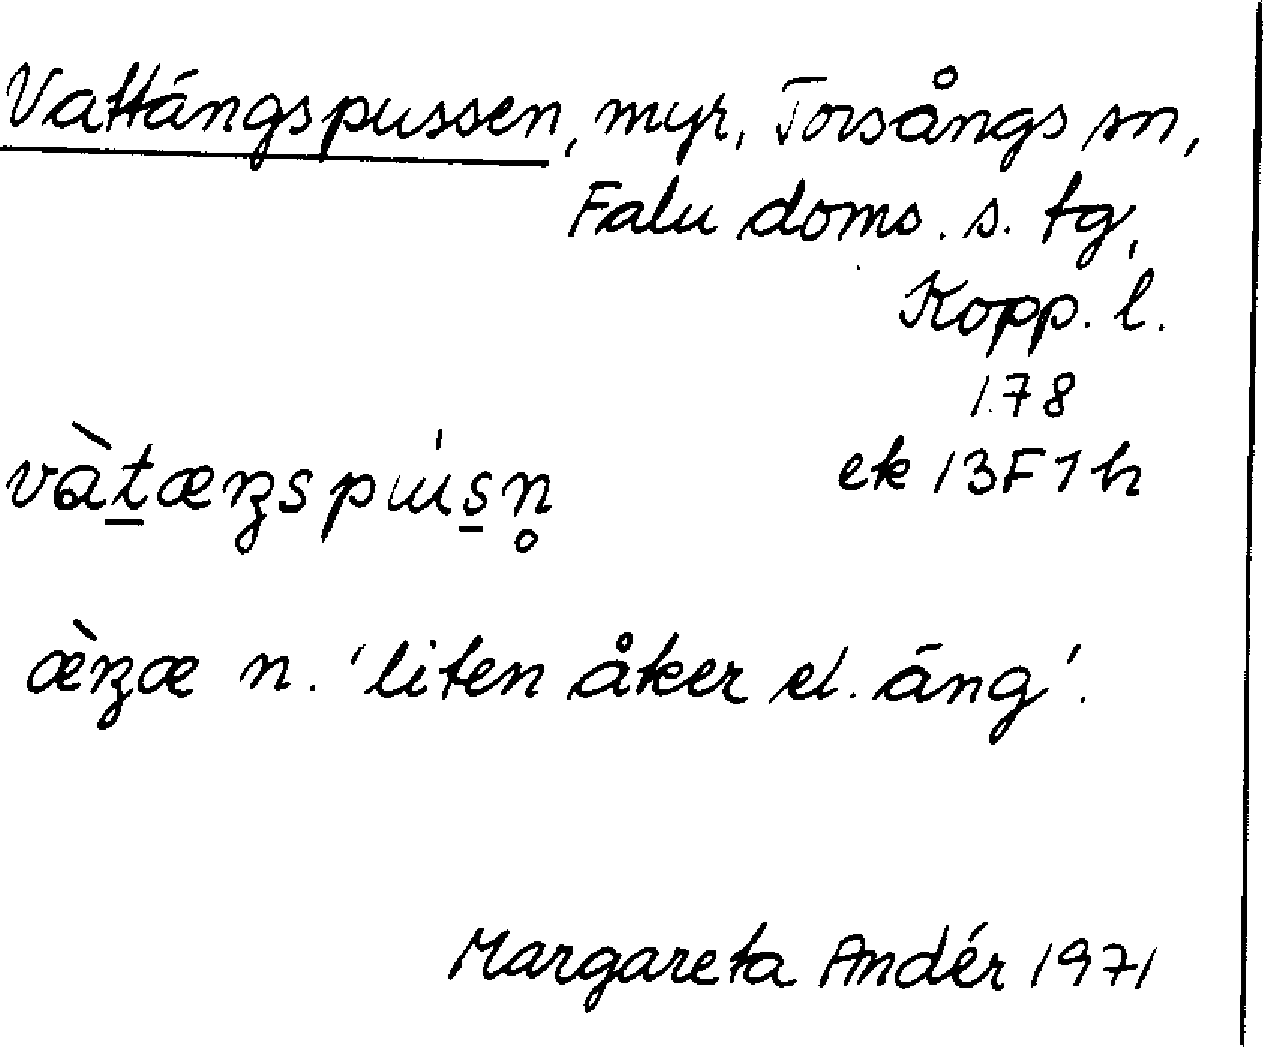 Vattängspussen, myr, Torsångs sn,
Falu doms. s. tg,
Kopp. l.
178
vàt̲æŋspɯ́s̲n̥ ek 13F1h
æ̀ŋæ n. 'liten åker el. äng'.
Margareta Andér 1971